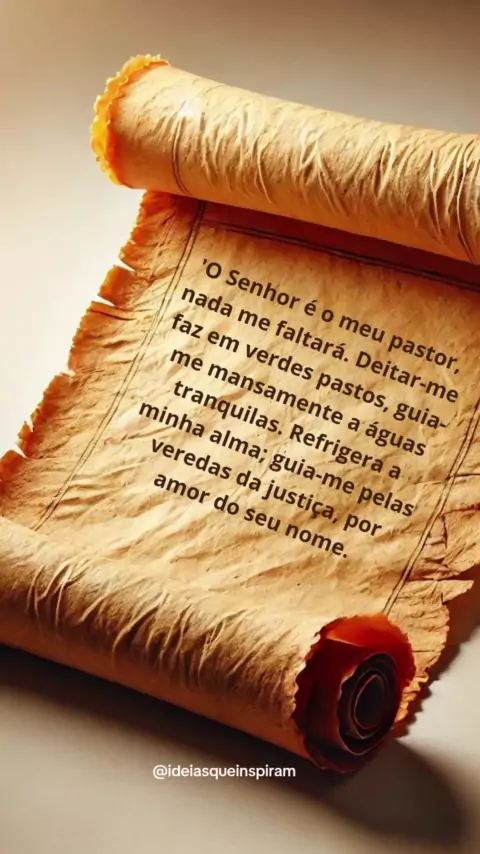 'O Senhor é o meu pastor,
nada me faltará. Deitar-me
faz em verdes pastos, guia-
me mansamente a águas
tranquilas. Refrigera a
minha alma; guia-me pelas
veredas da justiça, por
amor do seu nome.
@ideiasqueinspiram